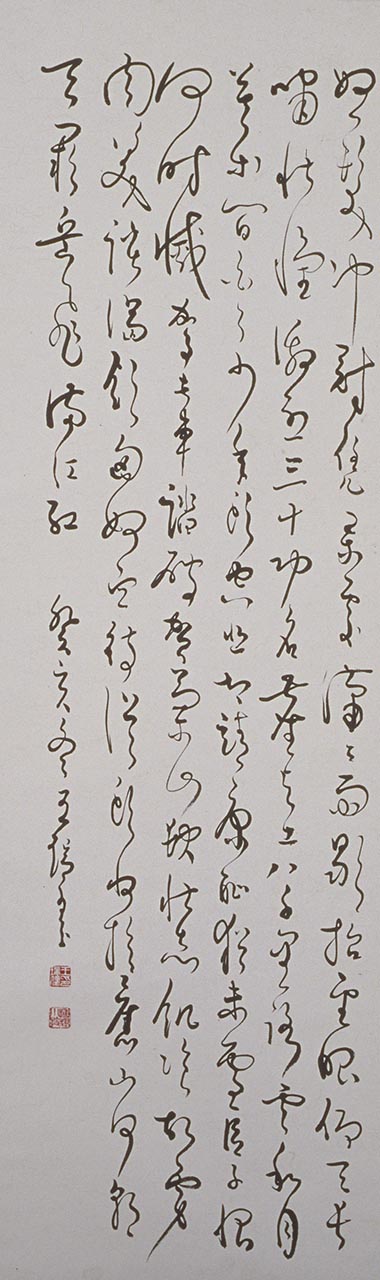 怒髮沖冠憑闌處瀟瀟雨歇抬望眼仰天長
嘯壯懷激烈三十功名塵與土八千里路雲和月
莫等閒白了少年頭空悲切靖康恥猶未雪臣子恨
何時滅駕長車踏破賀蘭山缺壯志飢餐胡虜
肉笑談渴飲匈奴血待從頭收拾舊山河朝
天闕岳飛滿江紅 癸亥冬 王